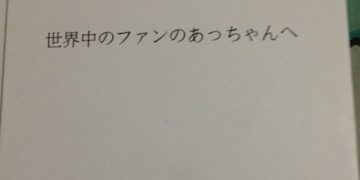 世界中のファンのあっちゃんへ